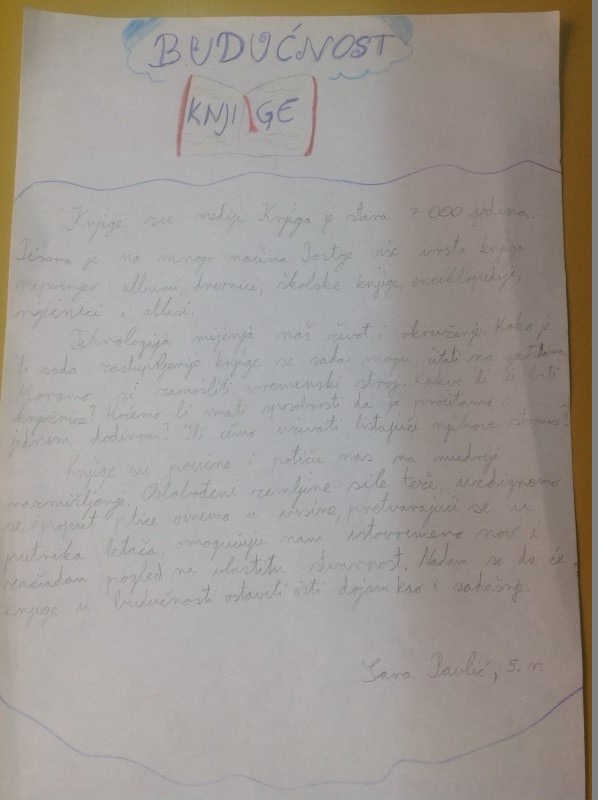 BUDUĆNOST
KNJIGE
Knjige su mediji Knjiga je stara 7 000 godina.
Pisana je na mnogo načina. Postoje više vrsta knjiga
najvećnije: albumi, dnevnici, školske knjige, enciklopedije,
rječnici i atlasi.
Tehnologija mijenja naš život i okruženje. Kako je
to sada zastupljenije knjige se sada mogu čitati na
Moramo si zamisliti vremenski stroj. Kakve li će biti
knjižnice? Hoćemo li imati sposobnost da je pročitamo
prvim dodirom? Ili ćemo uživati listajući njihove stranice?
Knjige su poučne i potiču nas na mudrije
razmišljanje. Oslobođeni zemljine sile teže, uzdignemo
se i poput ptice vinemo u visine, pretvarajući se u
putnika letača, omogućuju nam istovremeno nov i
začudan pogled na vlastitu stvarnost. Nadam se da će
knjige u budućnosti ostaviti isti dojam kao i sadašnje.
Sara Pavlić, 5. r.